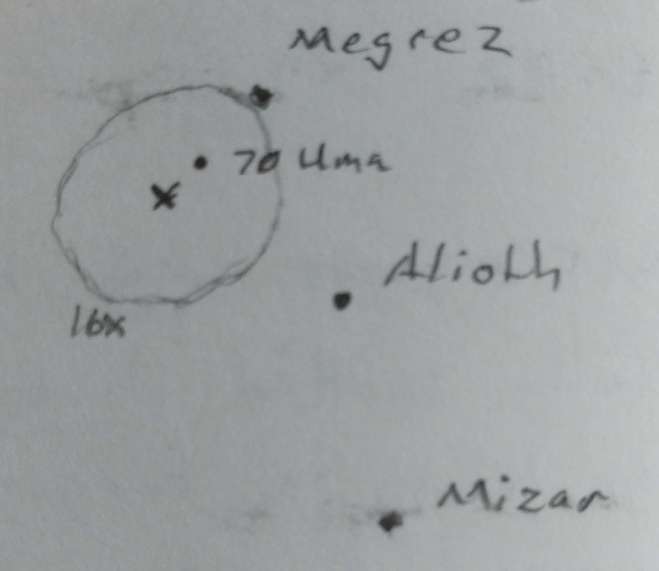 Megrez
70 Uma
Alioth
16x
Mizar